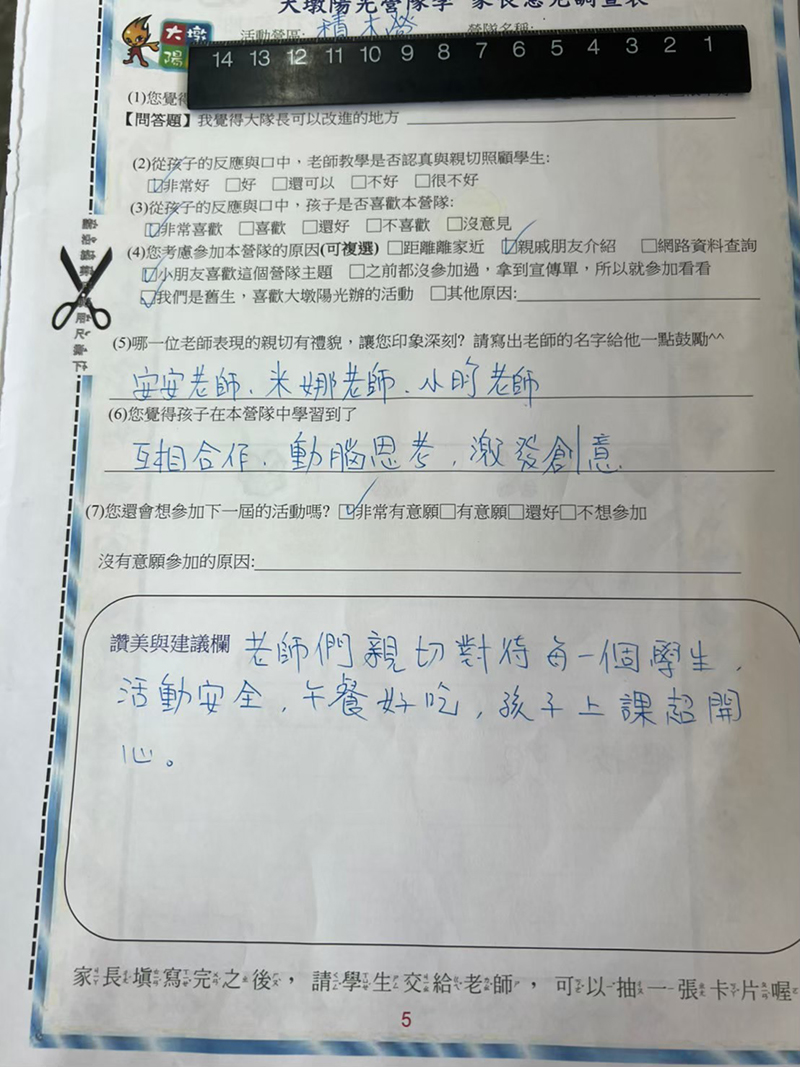 大墩陽光營隊學 家長意見調查表
大墩
陽
活動營區: 積木營 營隊名稱:
14 13 12 11 10 9 8 7 6 5 4 3 2 1
(1)您覺得
【問答題】我覺得大隊長可以改進的地方
(2)從孩子的反應與口中，老師教學是否認真與親切照顧學生:
☑非常好 □好 □還可以 □不好 □很不好
(3)從孩子的反應與口中，孩子是否喜歡本營隊:
☑非常喜歡 □喜歡 □還好 □不喜歡 □沒意見
(4)您考慮參加本營隊的原因(可複選) □距離離家近 ☑親戚朋友介紹 □網路資料查詢
☑小朋友喜歡這個營隊主題 □之前都沒參加過，拿到宣傳單，所以就參加看看
☑我們是舊生，喜歡大墩陽光辦的活動 □其他原因:
(5)哪一位老師表現的親切有禮貌，讓您印象深刻? 請寫出老師的名字給他一點鼓勵^^
安安老師、米娜老師、小昀老師
(6)您覺得孩子在本營隊中學習到了
互相合作，動腦思考，激發創意
(7)您還會想參加下一屆的活動嗎? ☑非常有意願□有意願□還好□不想參加
沒有意願參加的原因:
讚美與建議欄 老師們親切對待每一個學生，
活動安全，午餐好吃，孩子上課超開
心。
家長填寫完之後，請學生交給老師，可以抽一張卡片喔
5